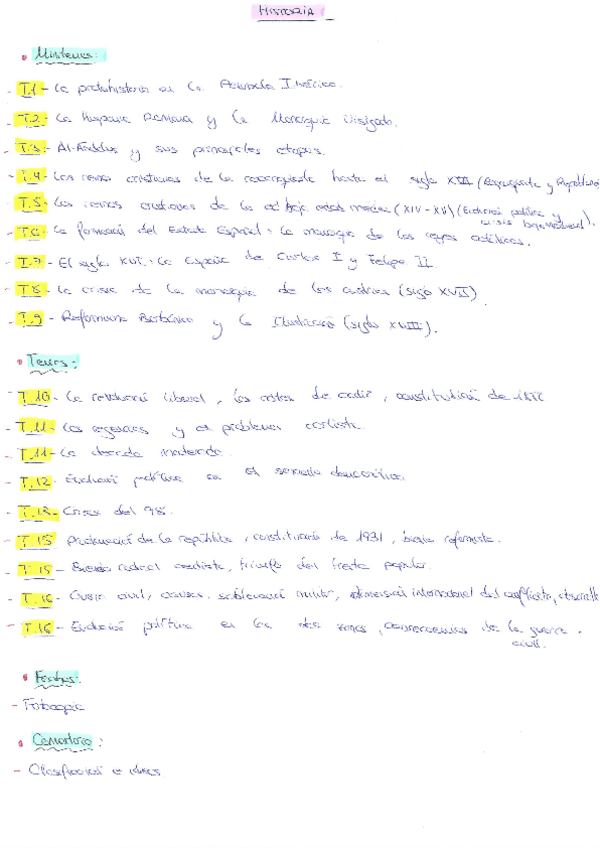 HISTORIA
• Mistemes:
- T.1 - La protohistoria en la Península Ibérica.
- T.2 - La Hispania Romana y la Monarquía Visigoda.
- T.3 - Al-Ándalus y sus principales etapas.
- T.4 - Los reinos cristianos de la reconquista hasta el siglo XIII (Reconquista y Repoblación
- T.5 - Los reinos cristianos de la edad media (XIV-XV) (Evolució política y crisis bajomedieval).
- T.6 - La formació del Estado Español: la monarquía de los reyes católicos.
- T.7 - El siglo XVI: La España de Carlos I y Felipe II
- T.8 - La crisis de la monarquía de los austrias (siglo XVII)
- T.9 - Reformisme Borbónico y la Ilustració (siglo XVIII).
• Temes:
- T.10 - La revolució liberal, las cortes de cadiz, constitució de 1812
- T.11 - Las regencias y el problema carlista.
- T.11 - La decada moderada.
- T.12 - Evolució política en el sexenio democrático.
- T.13 - Crisis del 98.
- T.15 Proclamació de la república, constitució de 1931, bienio reformista.
- T.15 - Bienio radical cedista, triunfo del frente popular.
- T.16 - Guerra civil, causas, sublevació militar, dimensió internacional del conflicto,
- T.16 - Evolució política en las dos zonas, consecuencias de la guerra civil.
•
-
• Comentario:
- Clasificació e ideas